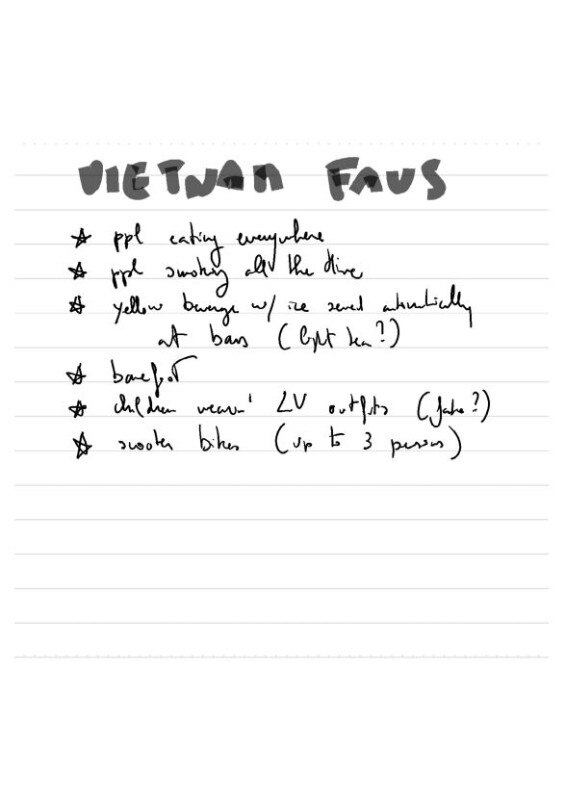 VIETNAM FAVS
☆ ppl eating everywhere
☆ ppl smoking all the time
☆ yellow beverage w/ ice served automatically
at bars (light tea?)
☆ barefoot
☆ children wearin' LV outfits (fake?)
☆ scooter bikes (up to 3 persons)